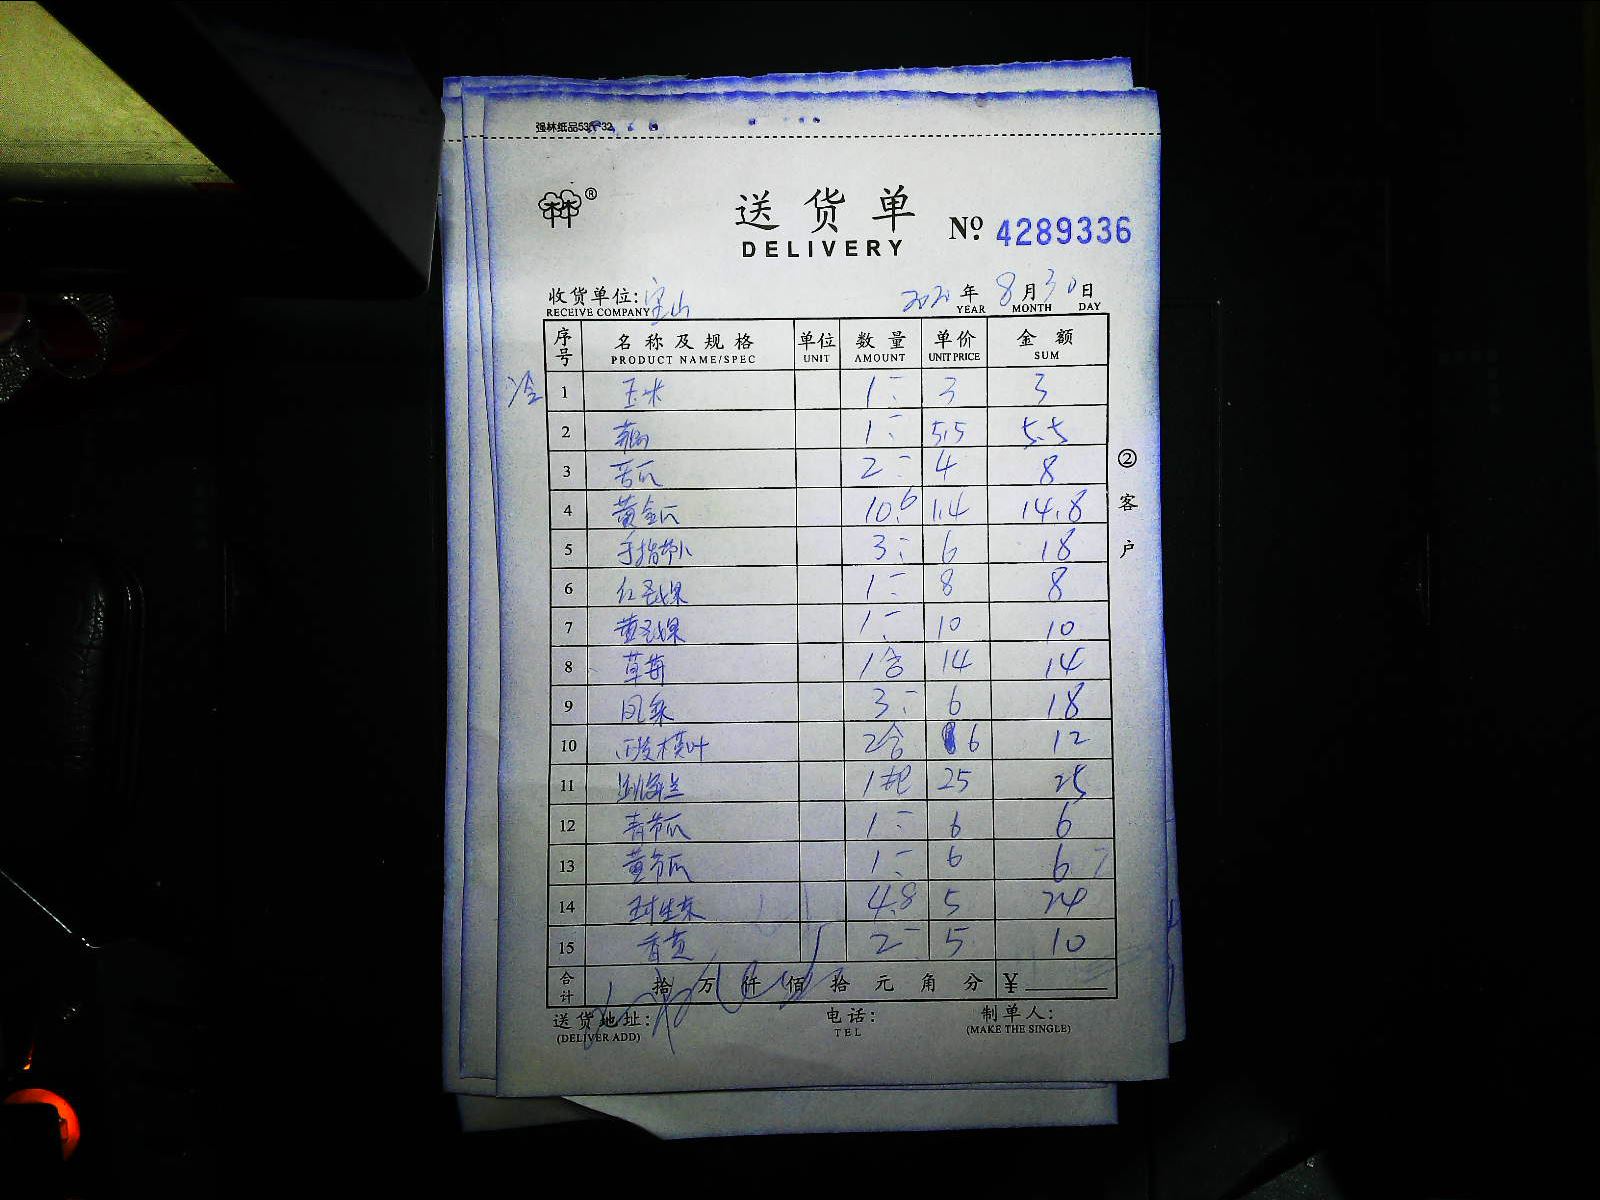 强林纸品532-32
林®
送货单
DELIVERY
No. 4289336
收货单位: 宝山 2020 年 8 月 30 日
RECEIVE COMPANY YEAR MONTH DAY
序号 名称及规格 单位 数量 单价 金额
PRODUCT NAME/SPEC UNIT AMOUNT UNIT PRICE SUM
冷 1 玉米 1 3 3
2 1 5.5 5.5
3 苦瓜 2 4 8
4 黄金瓜 10.6 1.4 14.8
5 手指 3 6 18
6 红圣女果 1 8 8
7 黄圣女果 1 10 10
8 草莓 1合 14 14
9 3 6 18
10 叶 2合 6 12
11 兰 1把 25 25
12 青节瓜 1 6 6
13 黄节瓜 1 6 6
14 球生菜 4.8 5 24
15 香芹 2 5 10
合计 拾 万 仟 佰 拾 元 角 分 ¥
送货地址: 电话: 制单人:
(DELIVER ADD) TEL (MAKE THE SINGLE)
② 客户